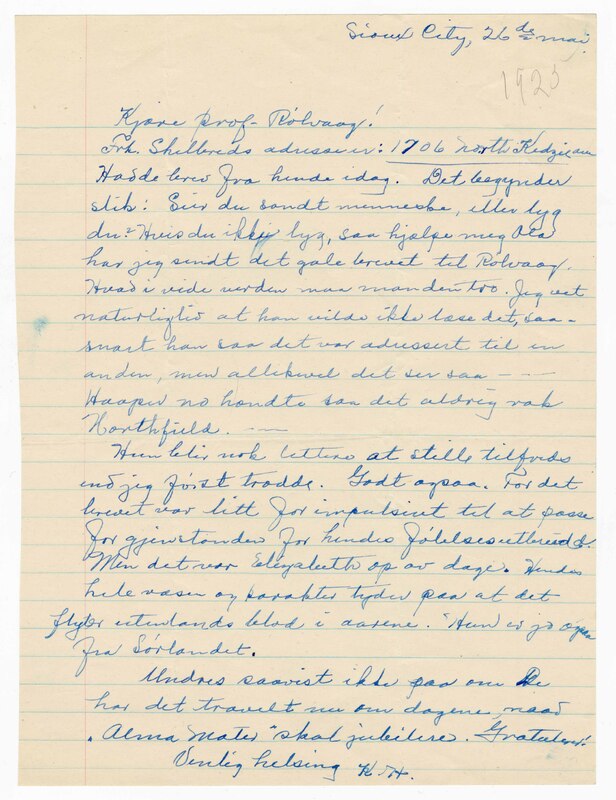 Sioux City, 26de mai,
1925
Kjære prof. Rölvaag!
Frk. Skilbreds adresse er: 1706 North Kedzie ave
Hadde brev fra hende idag. Det begynder
slik: Sier du sandt menneske, eller lyg
du? Hvis du ikkje lyg, saa hjælpe meg Ola
har jeg sendt det gale brevet til Rölvaag.
Hvad i vide verden maa manden tro. Jeg vet
naturligvis at han vilde ikke læse det, saa-
snart han saa det var adressert til en
anden, men allikevel det ser saa — —
Haaper no hendte saa det aldrig nak
Northfield. —
Hun blir nok lettere at stille tilfreds
end jeg först trodde. Godt ogsaa. For det
brevet var litt for impulsivt til at passe
for gjenstanden for hendes fölelsesutbrudd.
Men det var Elizabeth op av dage. Hendes
hele væsen og karakter tyder paa at det
flyter utenlands blod i aarene. Hun er jo ogsaa
fra Sörlandet.
Undres saavist ikke paa om De
har det travelt nu om dagene, naar
"Alma Mater" skal jubilere. Gratulerer!
Venlig helsing K.H.